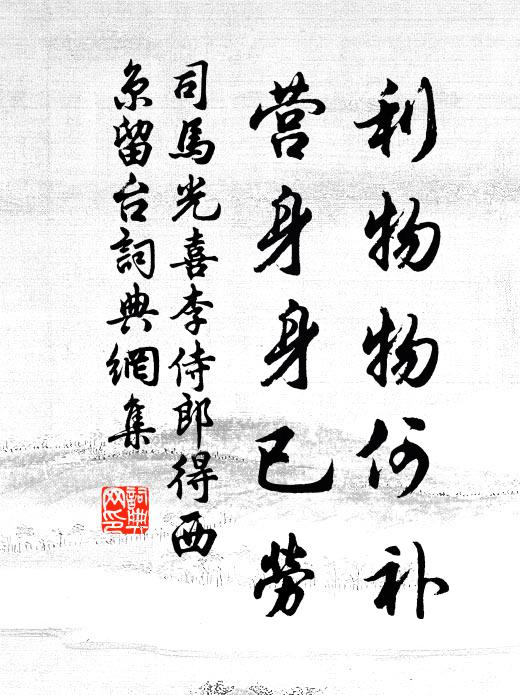 利物物何补
营身身已勞
司馬光喜李侍郎得西
京留台詞典網集
詞典网印